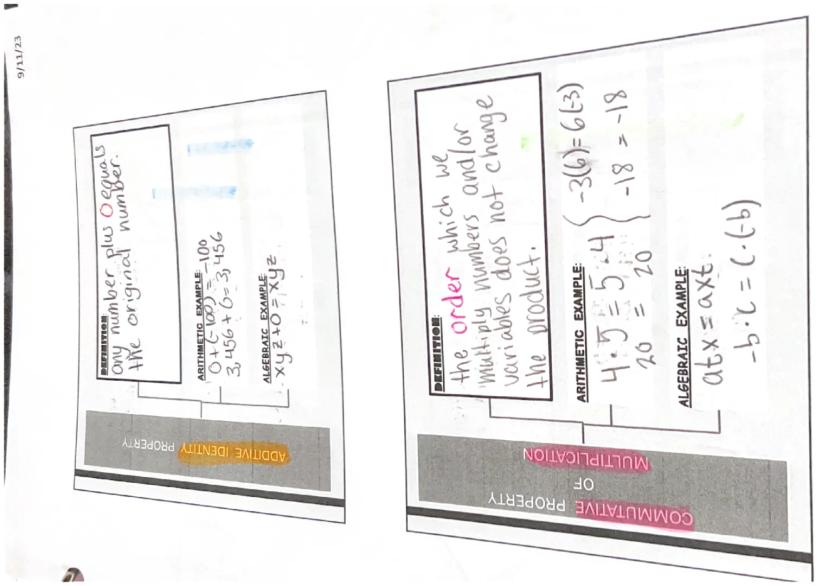 9/11/23
ADDITIVE IDENTITY PROPERTY
DEFINITION:
any number plus 0 equals
the original number.
ARITHMETIC EXAMPLE:
0+(-100) = -100
3,456+0=3,456
ALGEBRAIC EXAMPLE:
xyz+0=xyz
COMMUTATIVE PROPERTY
OF
MULTIPLICATION
DEFINITION:
the order which we
multiply numbers and/or
variables does not change
the product.
ARITHMETIC EXAMPLE:
4·5=5·4 } -3(6)=6(-3)
20 = 20 } -18 = -18
ALGEBRAIC EXAMPLE:
atx=axt
-b·c=c·(-b)